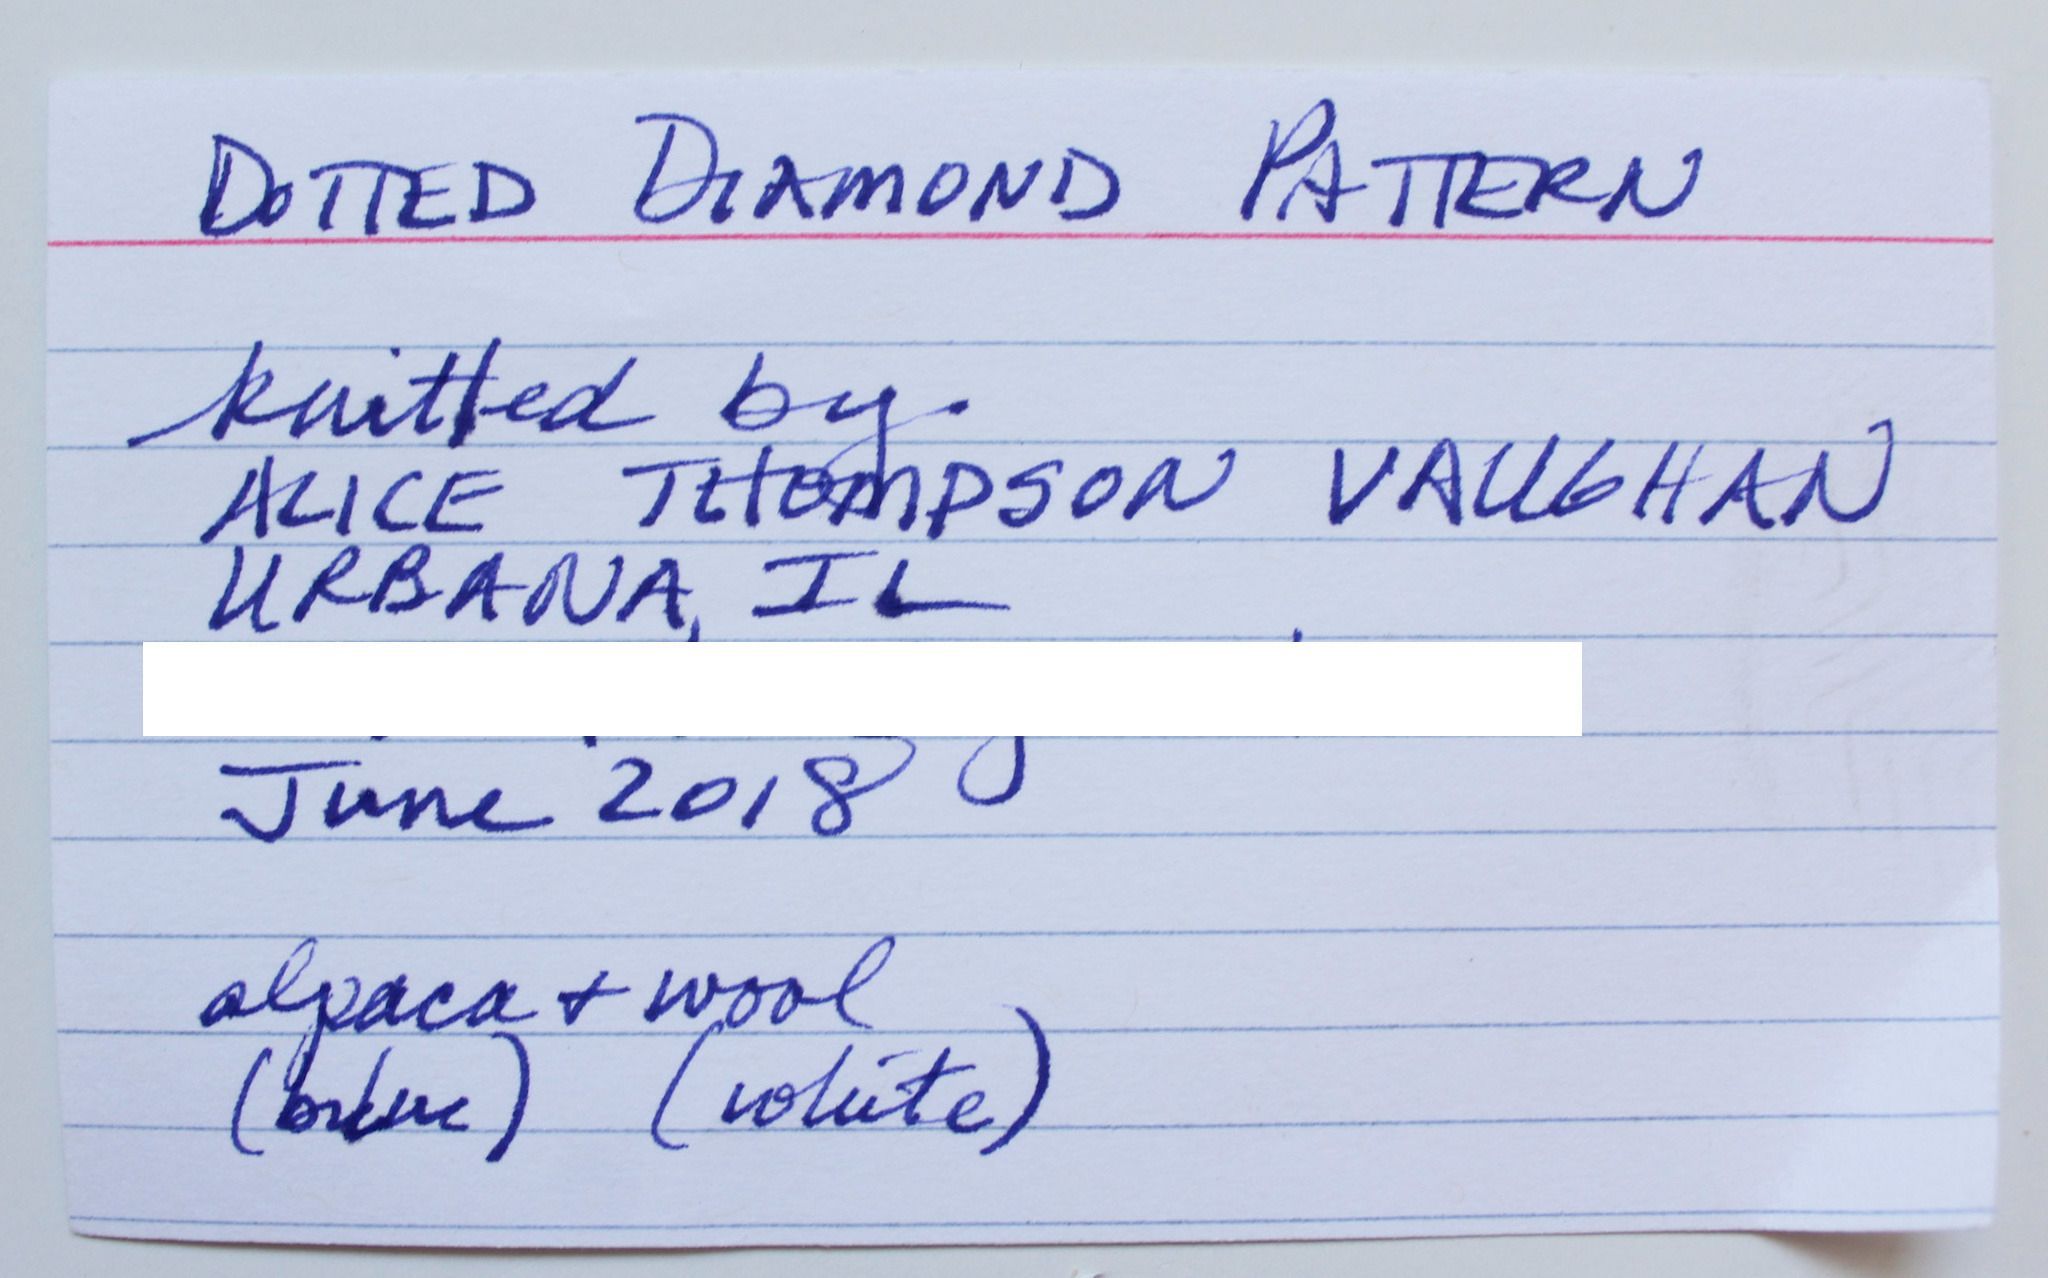 DOTTED DIAMOND PATTERN
knitted by.
ALICE THOMPSON VAUGHAN
URBANA, IL
June 2018
alpaca + wool
(white)